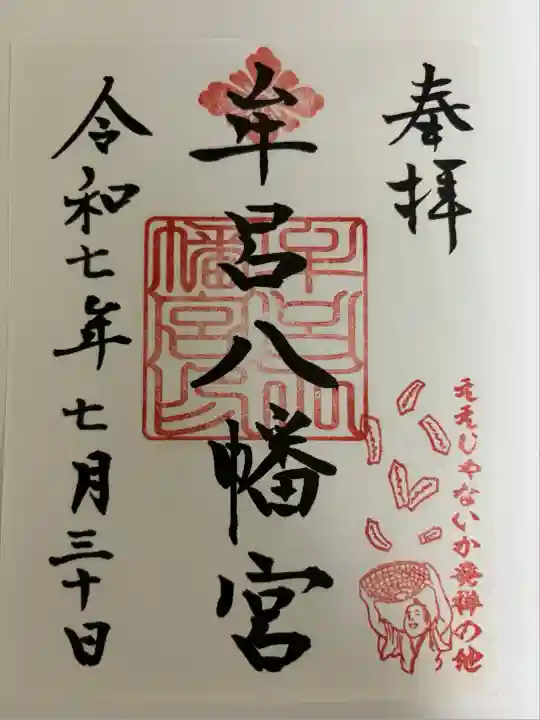 奉拝
ええじゃないか発祥の地
牟呂八幡宮
令和七年七月三十日